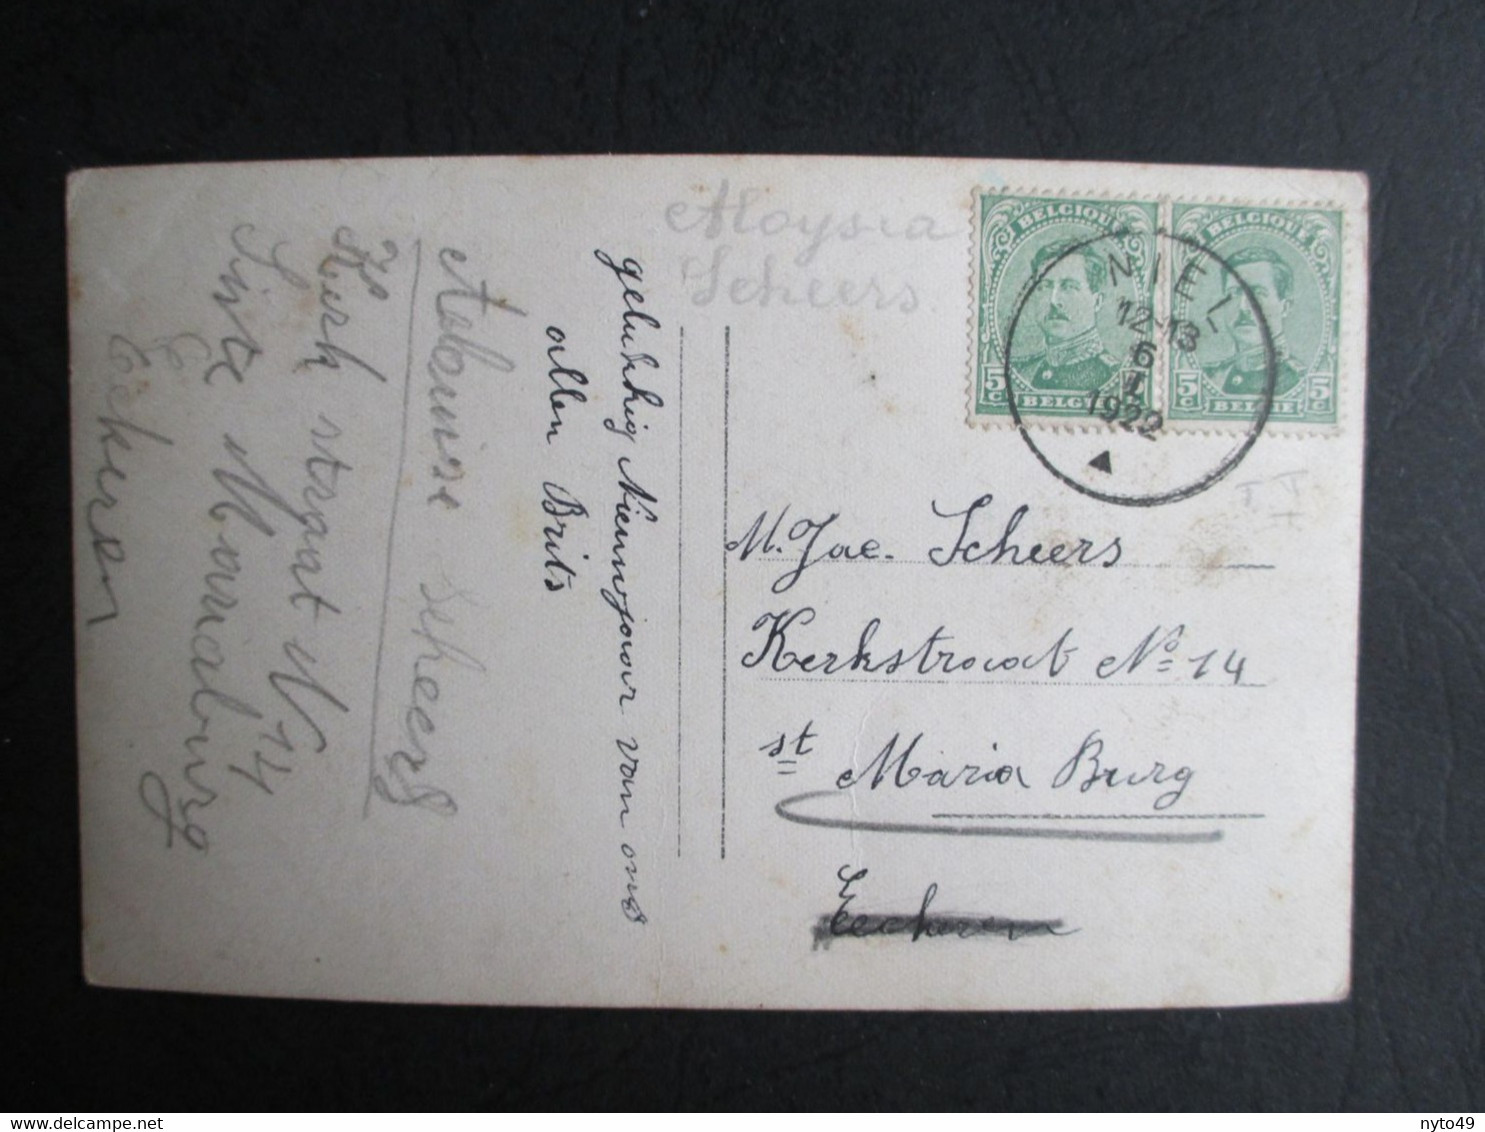 Aloysia
Scheers.
BELGIQUE
BELGIQUE
5 C
BELGIË
5 C
BELGIE
5 C
NIEL
12-13
6
I
1922
gelukkig Nieuwjaar van ons
allen Brits
M. Jac. Scheers
Kerkstraat No 14
st Maria Burg
Eeckeren
scheers
Kerk straat N 14
Sinte Mariaburg
Eekeren
nyto49